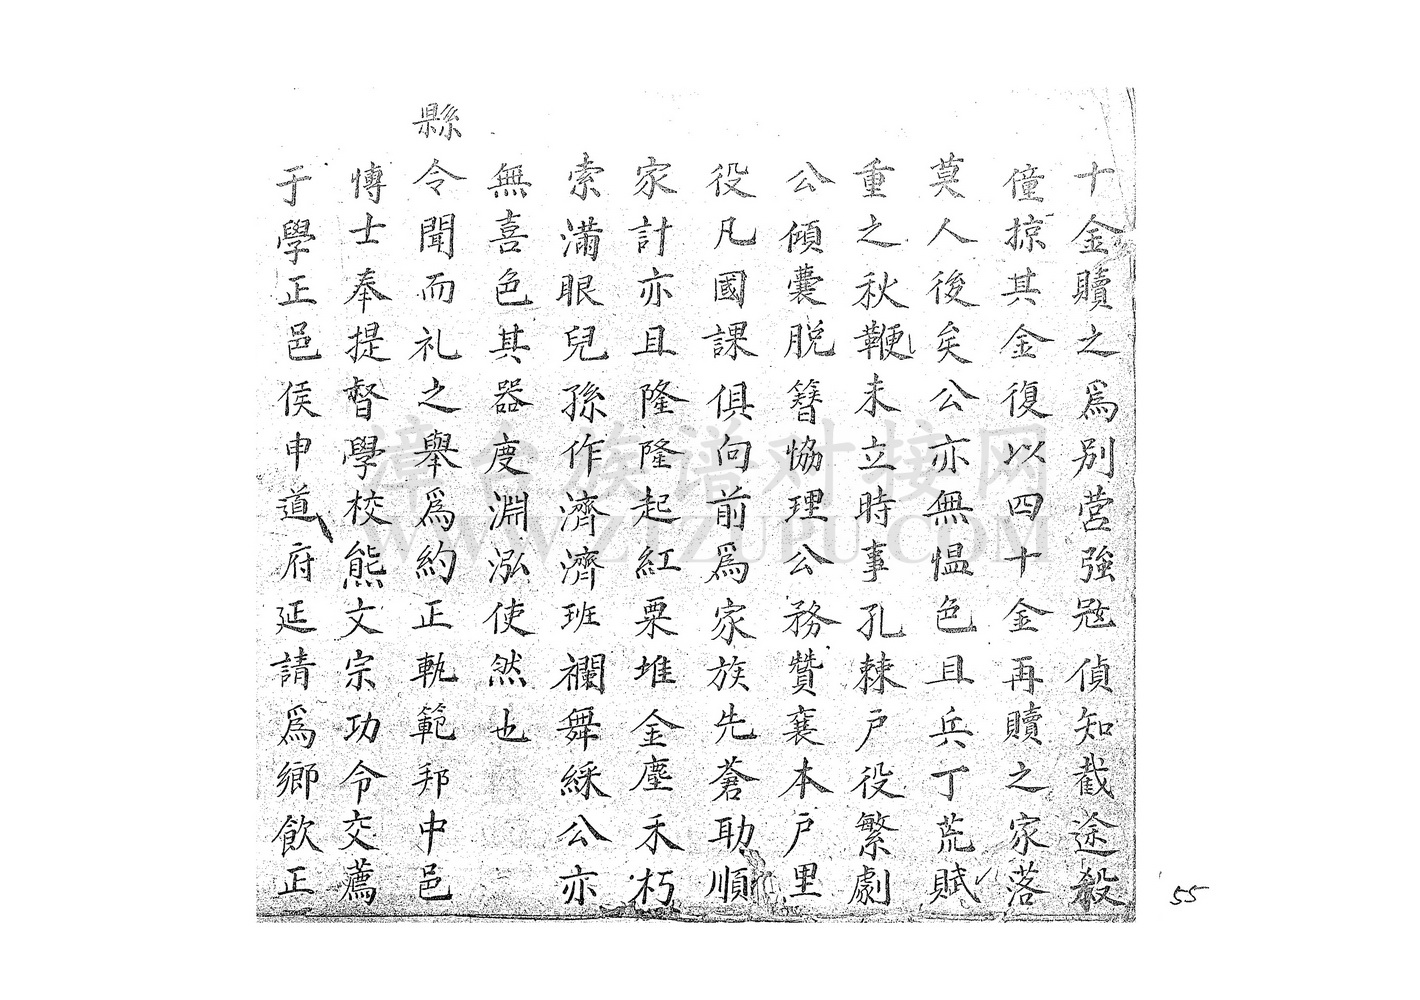 十金贖之爲別營強冦偵知截途殺
僮掠其金復以四十金再贖之家落
莫人後矣公亦無愠色且兵丁荒賦
重之秋鞭未立時事孔棘戶役繁劇
公傾囊脱簪恊理公務贊襄本戶里
役凡國課俱向前爲家族先蒼助順
家計亦且隆隆起紅粟堆金塵禾朽
索滿眼兒孫作濟濟班襴舞綵公亦
無喜色其器度淵泓使然也
縣令聞而礼之舉爲約正軌範邦中邑
博士奉提督學校熊文宗功令交薦
于學正邑侯申道府延請爲鄉飲正
55
漳台族谱对接网
WWW.ZTZUPU.COM